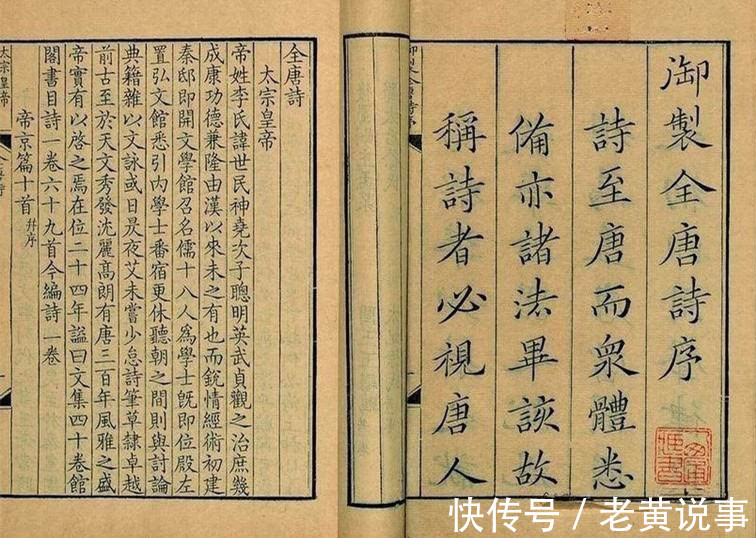 御製全唐詩序
詩至唐而眾體悉
備亦諸法畢該故
稱詩者必視唐人
全唐詩
太宗皇帝
帝姓李氏諱世民神堯次子聰明英武貞觀之治庶幾
成康功德兼隆由漢以來未之有也而銳情經術初建
秦邸即開文學館召名儒十八人爲學士既即位殿左
置弘文館悉引內學士番宿更休聽朝之間則與討論
典籍雜以文詠或日昃夜艾未嘗少怠詩筆草隸卓越
前古至於天文秀發沈麗高朗有唐三百年風雅之盛
帝實有以啓之焉在位二十四年諡曰文集四十卷館
閣書目詩一卷六十九首今編詩一卷
帝京篇十首 并序
太宗皇帝
快传号 / 老黄说事